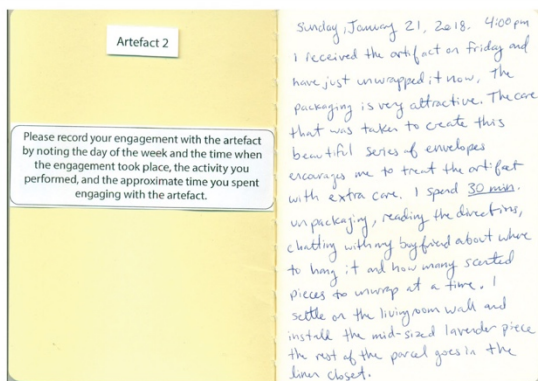 Artefact 2
Please record your engagement with the artefact
by noting the day of the week and the time when
the engagement took place, the activity you
performed, and the approximate time you spent
engaging with the artefact.
Sunday, January 21, 2018. 4:00pm
I received the artifact on Friday and
have just unwrapped it now. The
packaging is very attractive. The care
that was taken to create this
beautiful series of envelopes
encourages me to treat the artifact
with extra care. I spend 30 min.
unpackaging, reading the directions,
chatting with my boyfriend about where
to hang it and how many scented
pieces to unwrap at a time. I
settle on the livingroom wall and
install the mid-sized lavender piece
the rest of the parcel goes in the
linen closet.